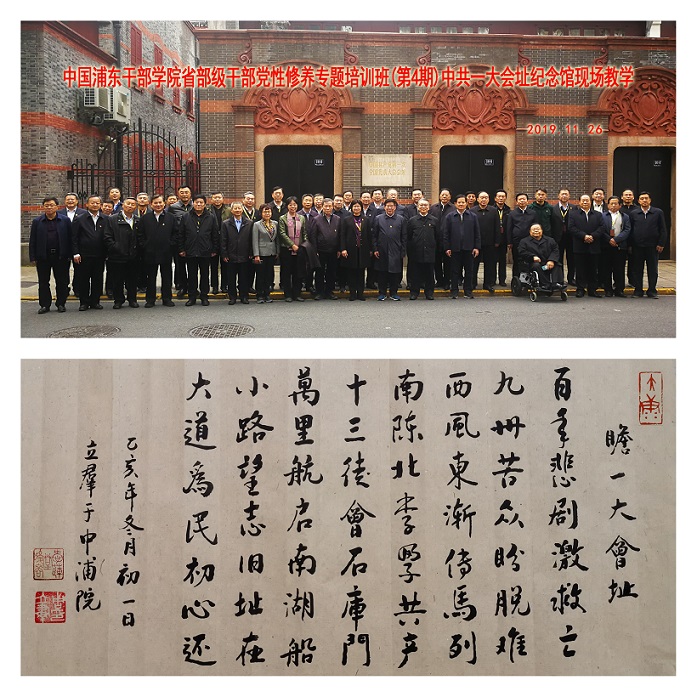 中国浦东干部学院省部级干部党性修养专题培训班(第4期)中共一大会址纪念馆现场教学
2019.11.26
瞻一大會址
百年悲剧激救亡
九州苦众盼脱难
西風東漸傳馬列
南陈北李舉共产
十三徒會石庫門
萬里航启南湖船
小路望志旧址在
大道為民初心还
乙亥年冬月初一日
立羣于中浦院